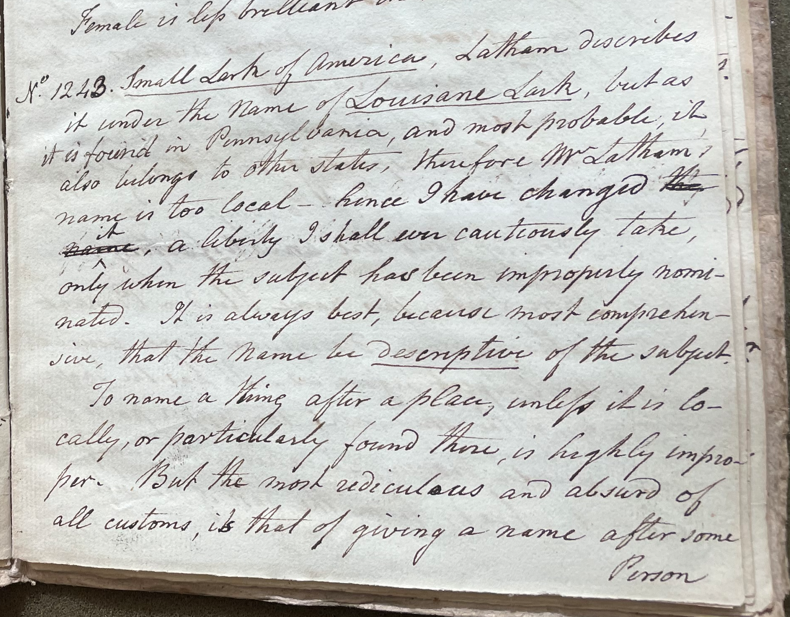 Female is less brilliant
No. 1243. Small Lark of America, Latham describes
it under the Name of Louisiane Lark, but as
it is found in Pennsylvania, and most probable, it
also belongs to other states, therefore Mr Latham's
name is too local – hence I have changed the
name it, a liberty I shall ever cautiously take,
only when the subject has been improperly nomi-
nated. It is always best, because most comprehen-
sive, that the Name be descriptive of the subject.
To name a thing after a place, unless it is lo-
cally, or particularly found there, is highly impro-
per. But the most rediculous and absurd of
all customs, is that of giving a name after some
Person